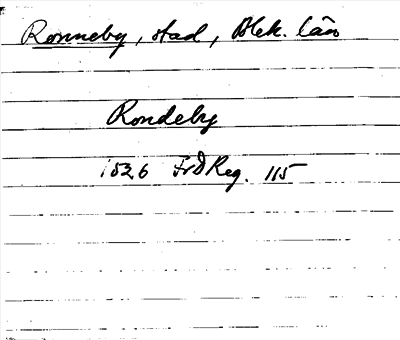 Ronneby, stad, Blek. län
Rondeby
1526 FrDReg. 115